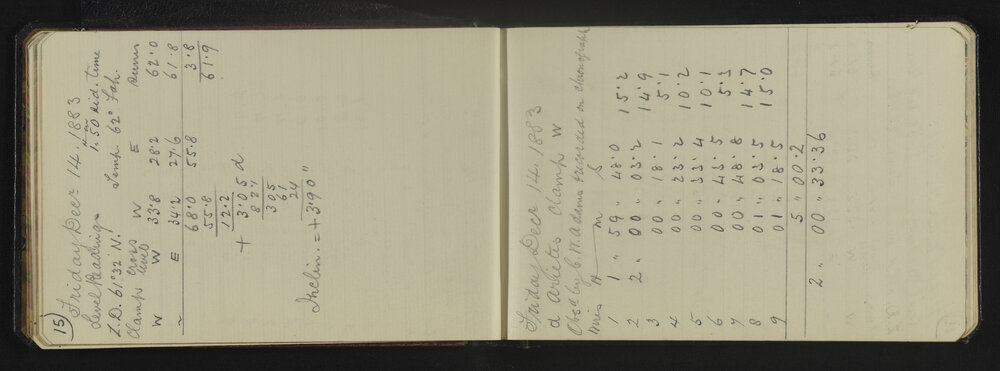 15)
Friday Decr 14. 1883
Level Readings 1.50 Sid. time
Z.D. 61° 32' N. Temp. 62° Fah.
Clamp Cross level W E Sums
W W 33.8 28.2 62.0
~ E 34.2 27.6 61.8
68.0 55.8 3.8
55.8 61.9
12.2
+ 3.05 d
305
61
24
Inclin. = + 3.90"
Friday Decr 14. 1883
α Arietis Clamp W
Obsd by C. W. Adams & recorded on chronograph
Wires H m S
1 1 " 59 " 48.0 15.2
2 2 " 00 " 03.2 14.9
3 00 " 18.1 5.1
4 00 " 23.2 10.2
5 00 " 33.4 10.1
6 00 " 43.5 5.3
7 00 " 48.8 14.7
8 01 " 03.5 15.0
9 01 " 18.5
5 " 00.2
2 " 00 " 33.36